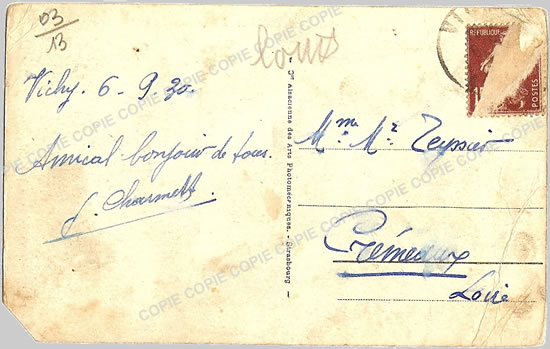 03/13
cours
Vichy. 6-9-30.
Amical bonjour de tous.
Mme Mr Teyssier
Crémeaux
Loire
Cie Alsacienne des Arts Photomécaniques. - Strasbourg
REPUBLIQUE
POSTES
COPIE COPIE COPIE COPIE COPIE COPIE